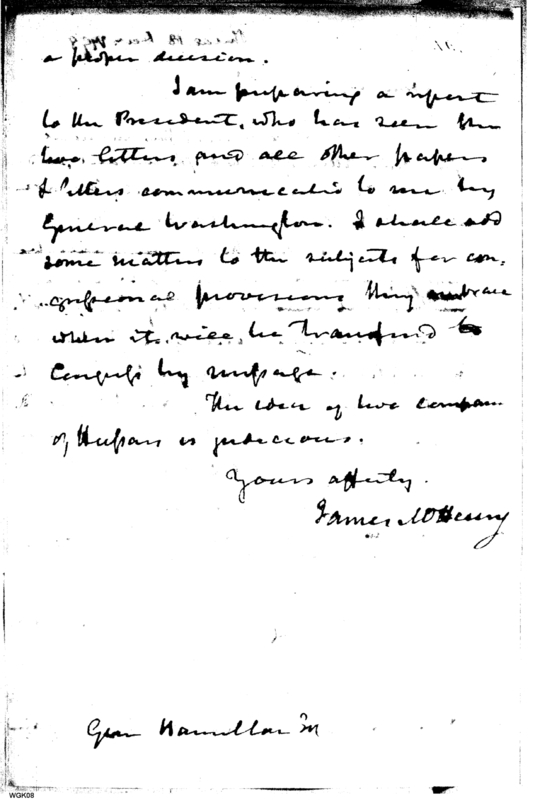 a proper decision.
I am preparing a report
to the President, who has seen the
two letters and all other papers
& letters communicated to me by
General Washington. I shall add
some matters to the subjects for con-
gressional provisions they embrace
when it will be transfered to
Congress by message.
The idea of two compan
of Hussars is judicious.
Yours affectly.
James McHenry
Gen Hamilton
WGK08